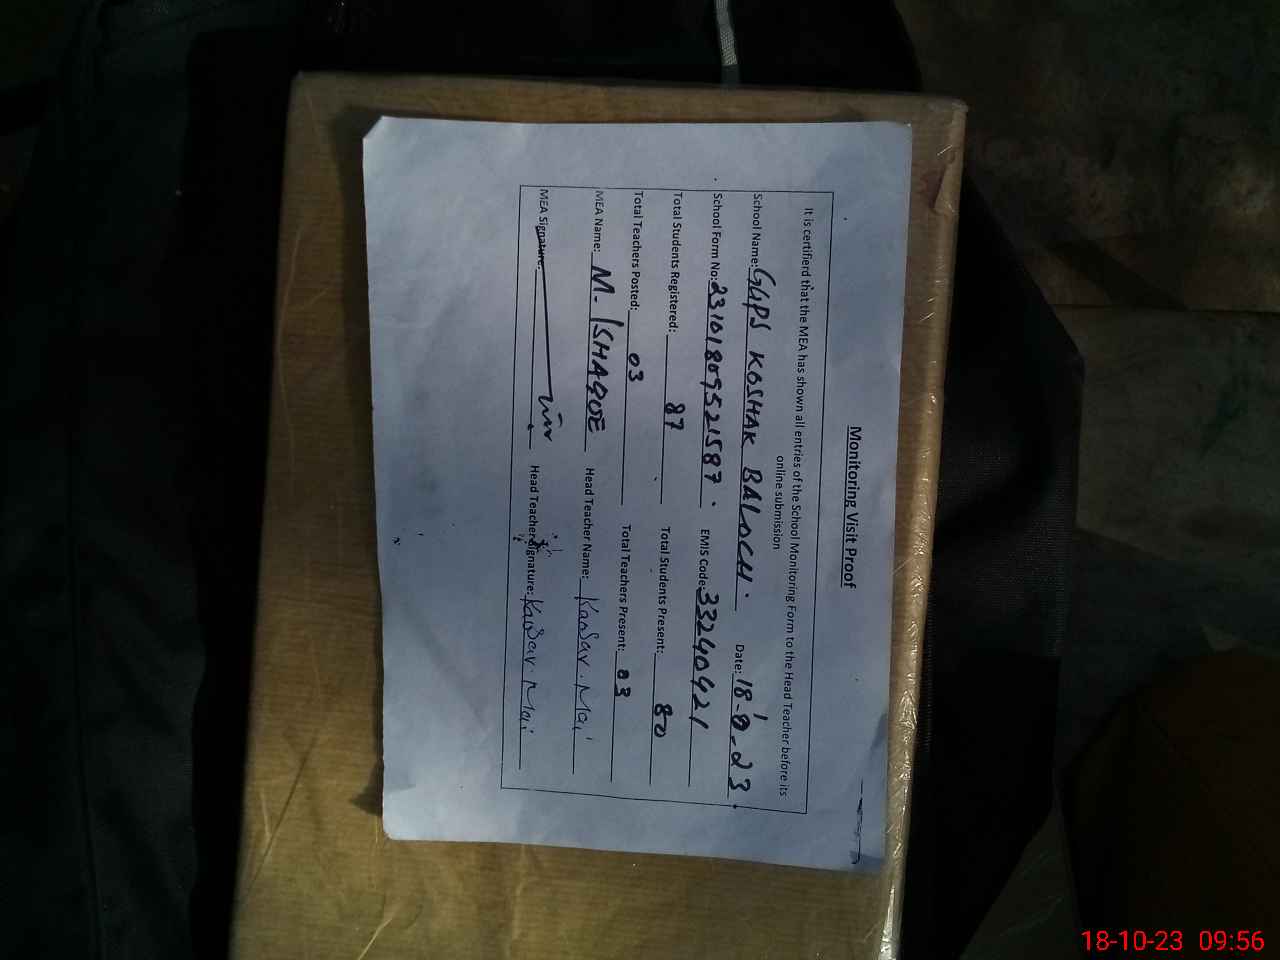 Monitoring Visit Proof
It is certifierd that the MEA has shown all entries of the School Monitoring Form to the Head Teacher before its
online submission
School Name: GGPS KOSHAK BALOCH. Date: 18-10-23.
School Form No: 23101809521587. EMIS Code 33240421
Total Students Registered: 87 Total Students Present: 80
Total Teachers Posted: 03 Total Teachers Present: 03
MEA Name: M. ISHAQUE Head Teacher Name: Kausar. Mai
MEA Signature: Head Teacher Signature: Kausar. Mai
18-10-23 09:56